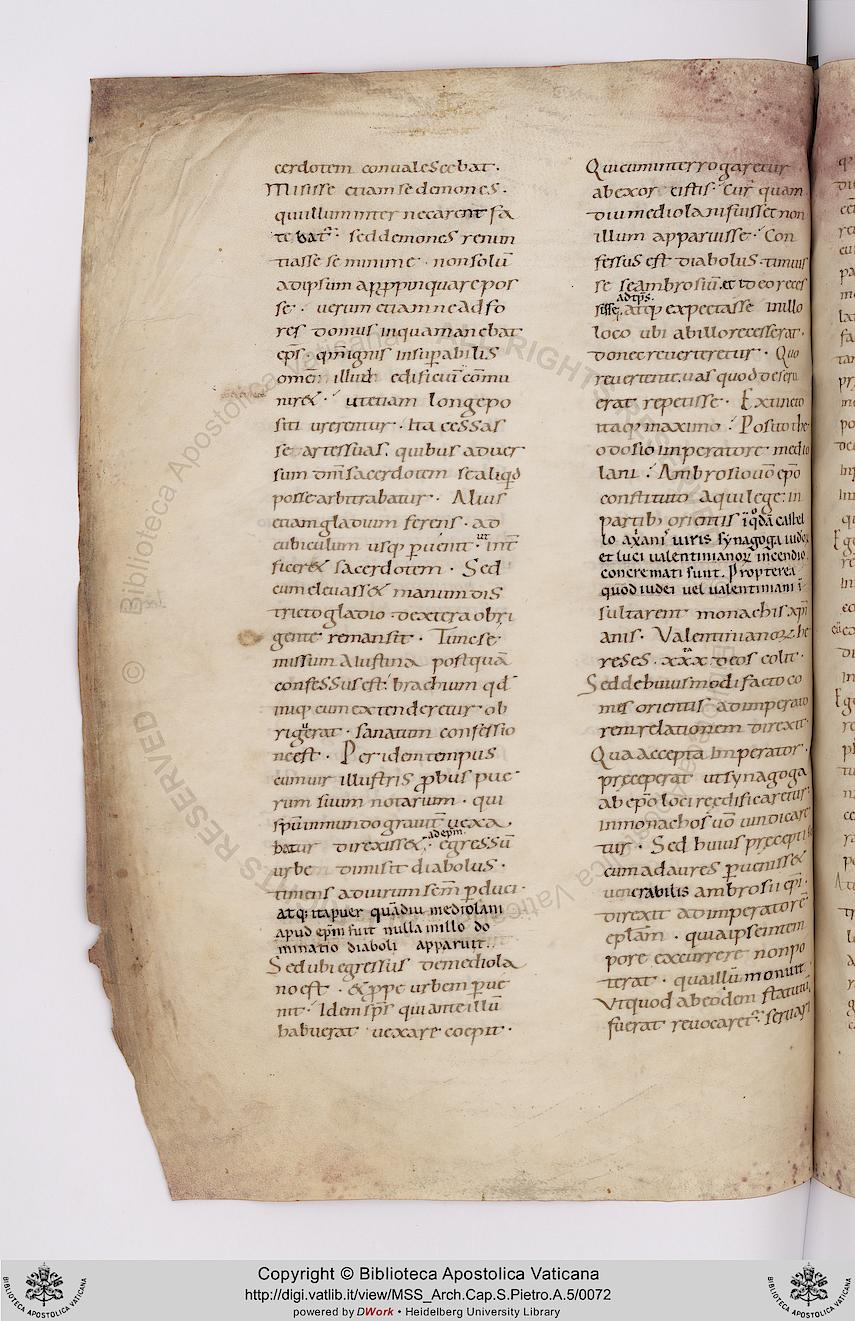 cerdotem conualescebat.
Misisse etiam se demones.
qui illum internecarent fa
tebat̃. sed demones renun
tiasse se minime. non solũ
ad ipsum appppinquare pos
se. uerum etiam ne ad fo
res domus in qua manebat
ep̃s. qm̃ ignis insupabilis
omẽ illud edificiũ cõmu
niret. ut etiam longe po
siti urerentur. Ita cessas
se artes suas. quibus aduer
sum dm̃ sacerdotem se aliqd̃
posse arbitrabatur. Alius
etiam gladium ferens. ad
cubiculum usq; puenit. ut int̃
ficeret sacerdotem. Sed
cum eleuasset manum dis
tricto gladio. dextera obri
gente remansit. Tunc se
missum a Iustina postquã
confessus est. brachium qd̃
iniq; cum extenderetur. ob
riguerat. sanatum confessio
ne est. Per idem tempus
cum uir illustris pbus pue
rum suum notarium. qui
spũ inmundo grauit̃ uexa
batur direxisset. ad epm̃. egressũ
urbe dimisit diabolus.
timens ad uirum scm̃ pduci.
atq; ita puer quãdiu mediolani
apud epm̃ fuit nulla in illo do
minatio diaboli apparuit.
Sed ubi egressus de mediola
no est. & ppe urbem pue
nit. Idem sps̃ qui ante illũ
habuerat uexare coepit.
Qui cum interrogaretur
ab exorcistis. cur quam
diu mediolani fuisset non
illum apparuisse. Con
fessus est diabolus. timuis
se se ambrosiũ. et ideo reces
sisse. ad tp̃s. atq; expectasse in illo
loco ubi ab illo recesserat.
donec reuerteretur. Quo
reuertente. uas quod deseru
erat repetisse. Extincto
itaq; maximo. Posito the
odosio imperatore medio
lani. Ambrosio uõ epõ
constituto aquilege. in
partib; orientis ĩ qõdã castel
lo a xp̃ianis uiris synagoga iudeoꝝ
et luci ualentinianoꝝ incendio
concremati sunt. Propterea
quod iudei uel ualentiniani ĩ
sultarent monachis xp̃i
anis. Valentinianoꝝ he
reses. xxx deos colit.
Sed de huiusmodi facto co
mes orientis ad imperato
rem relationem direxit.
Qua accepta imperator.
preceperat ut synagoga
ab epõ loci reedificaretur.
in monachos uõ uindicare
tur. Sed huius precepti
cum ad aures puenisset
uenerabilis ambrosii
direxit ad imperatorẽ
epl̃am. quia ipse in tem
pore excurrere non po
terat. qua illũ monuit
Vt quod ab eodem statutũ
fuerat reuocaret̃. seruari